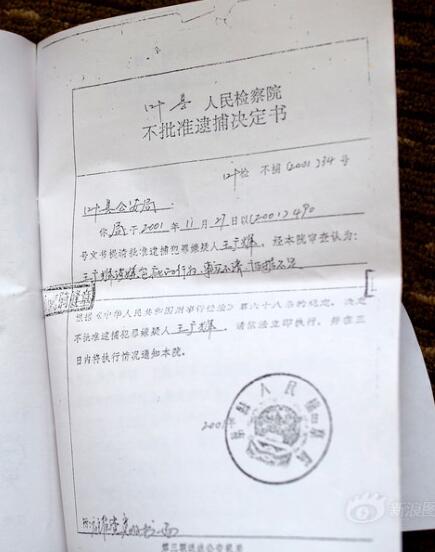 叶县 人民检察院
不批准逮捕决定书
叶检 不捕(2001)34号
叶县公安局:
你局于2001年11月27日以(2001)490
号文书提请批准逮捕犯罪嫌疑人王广辉,经本院审查认为:
王广辉 事实不清 证据不足
根据《中华人民共和国刑事诉讼法》第六十八条的规定,决定
不批准逮捕犯罪嫌疑人王广辉。请依法立即执行,并在三
日内将执行情况通知本院。
2001年
叶县人民检察院
第三联送达公安机关
新浪图